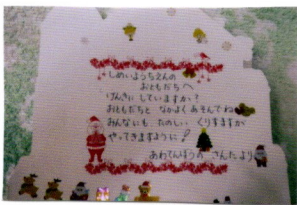 しめいようちえんの
おともだちへ
げんきに していますか？
おともだちと なかよく あそんでね
みんなにも たのしい くりすますが
やってきますように！
あわてんぼうの さんたより